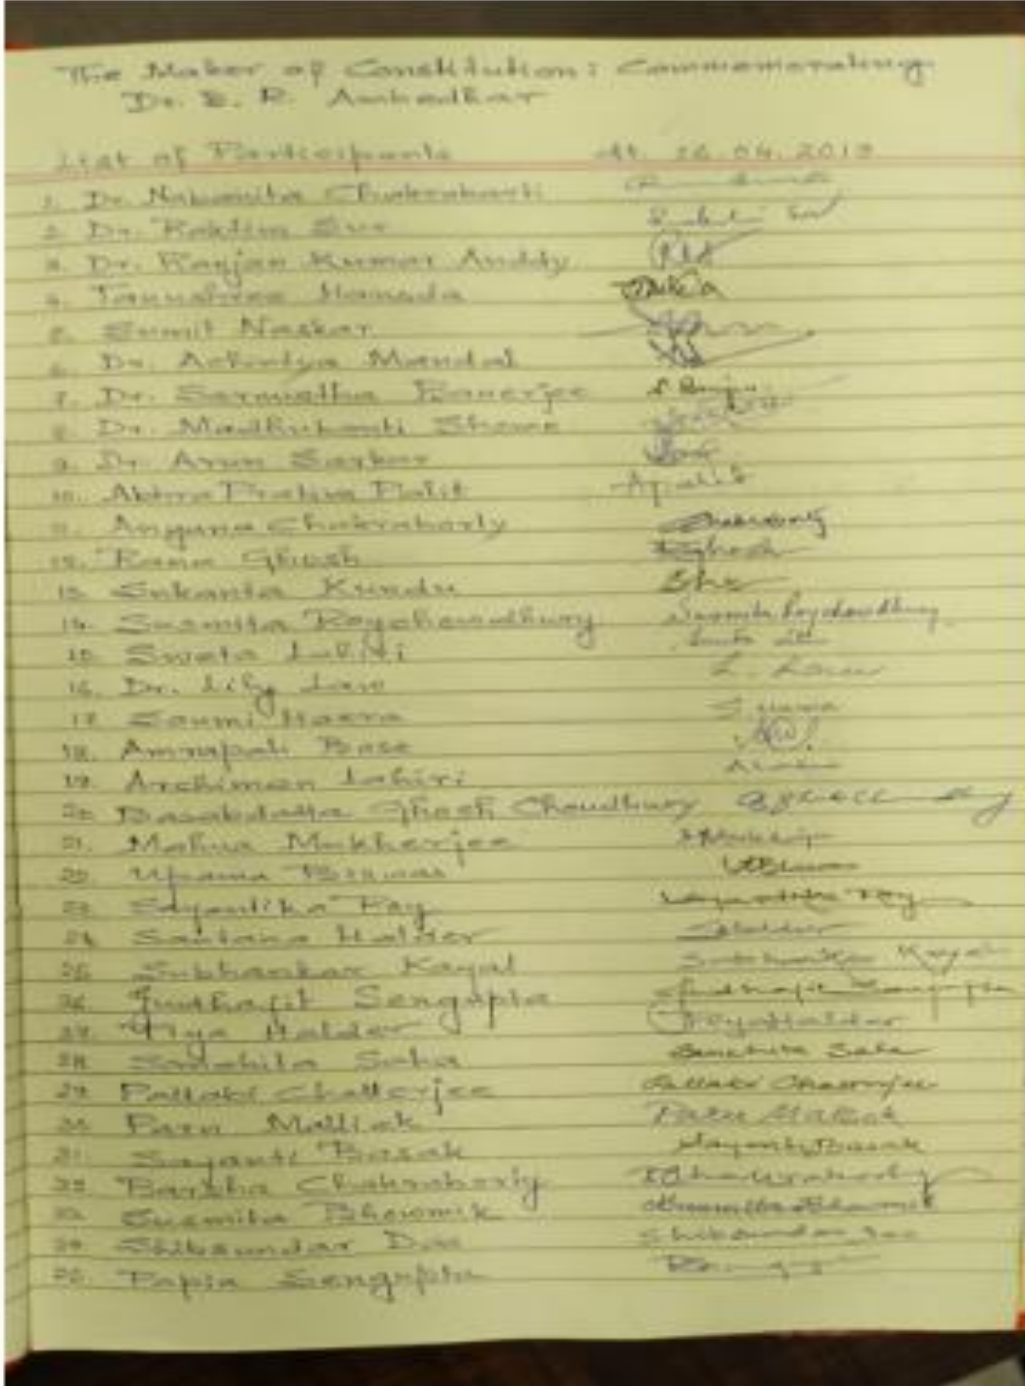 The Maker of Constitution: Commemorating
Dr. B. R. Ambedkar
List of Participants At. 26.04.2019
1. Dr. Nabamita Chakrabarti
2. Dr. Raktim Sur
3. Dr. Ranjan Kumar Auddy
4. Tanushree Hansda
5. Sumit Naskar
6. Dr. Achintya Mandal
7. Dr. Sarmistha Banerjee S. Banerjee
8. Dr. Madhubanti
9. Dr. Arun Sarkar
10. Abhra Pratim Palit Apalit
11. Anyana Chakraborty Chakraborty
12. Rana Ghosh RGhosh
13. Sukanta Kundu
14. Susmita Roychowdhury Susmita Roychowdhury
15. Sweta Lahiri
16. Dr. Lily Law L. Law
17. Soumi Hazra S. Hazra
18. Amrapali Bose
19. Archiman Lahiri
20. Basabdatta Ghosh Choudhury
21. Mahua Mukherjee MMukherjee
22. Upama Biswas UBiswas
23. Sayantika Ray Sayantika Ray
24. Santana Halder SHalder
25. Subhankar Kayal Subhankar Kayal
26. Judhajit Sengupta Judhajit Sengupta
27. Priya Halder Priya Halder
28. Samahita Saha Samahita Saha
29. Pallabi Chatterjee Pallabi Chatterjee
30. Paru Mallick Paru Mallick
31. Sayanti Basak Sayanti Basak
32. Barsha Chakraborty BChakraborty
33. Susmita Bhowmik Susmita Bhowmik
34. Shibsundar Das Shibsundar Das
35. Papia Sengupta